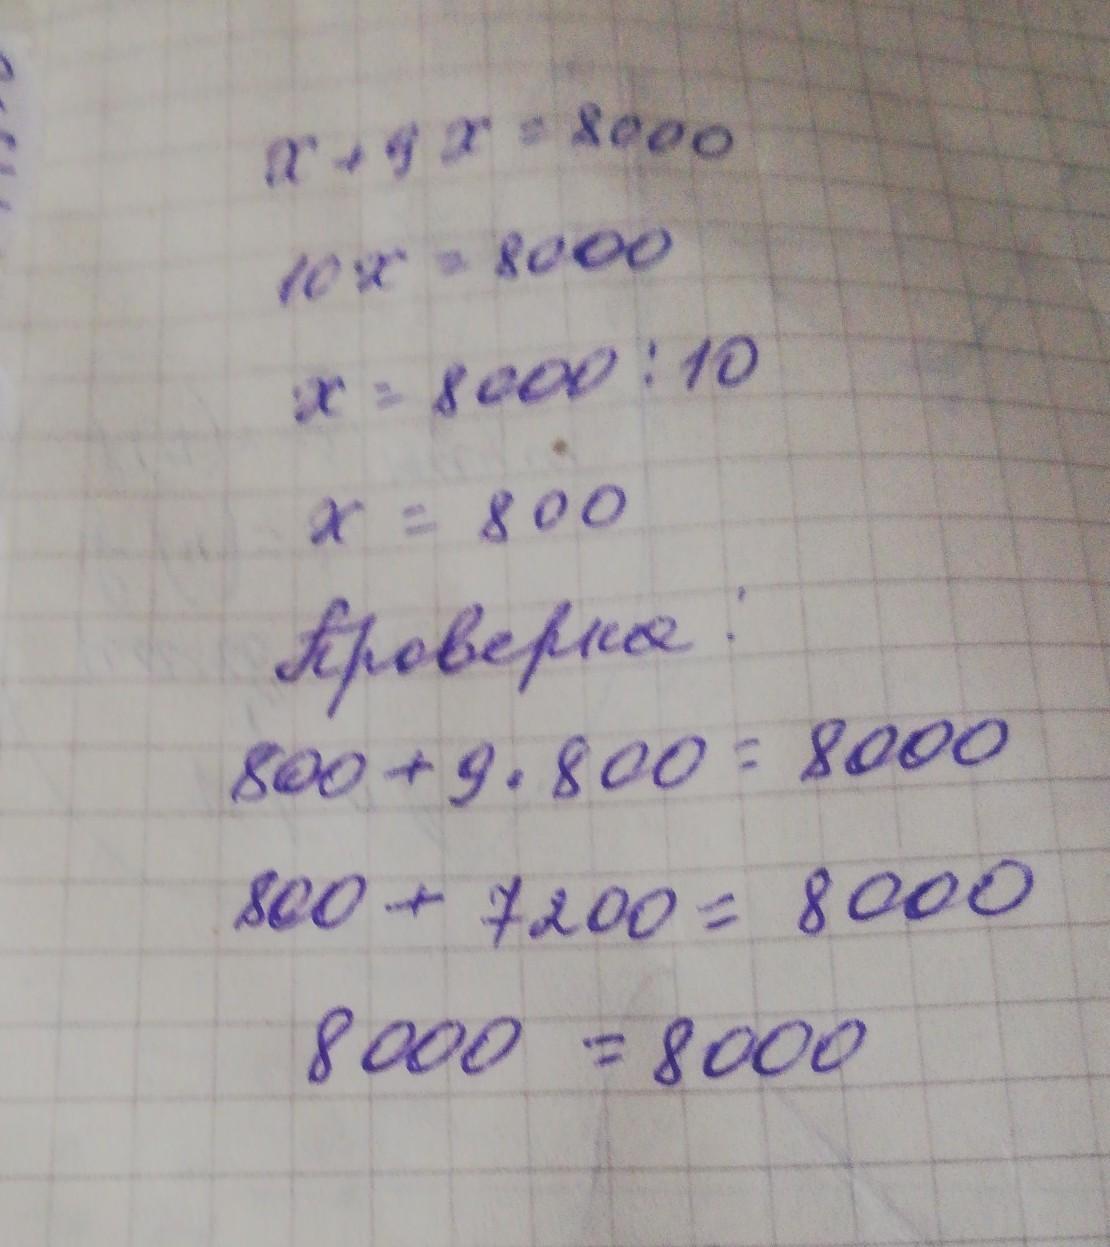 x + 9x = 8000
10x = 8000
x = 8000 : 10
x = 800
Проверка :
800 + 9 · 800 = 8000
800 + 7200 = 8000
8000 = 8000